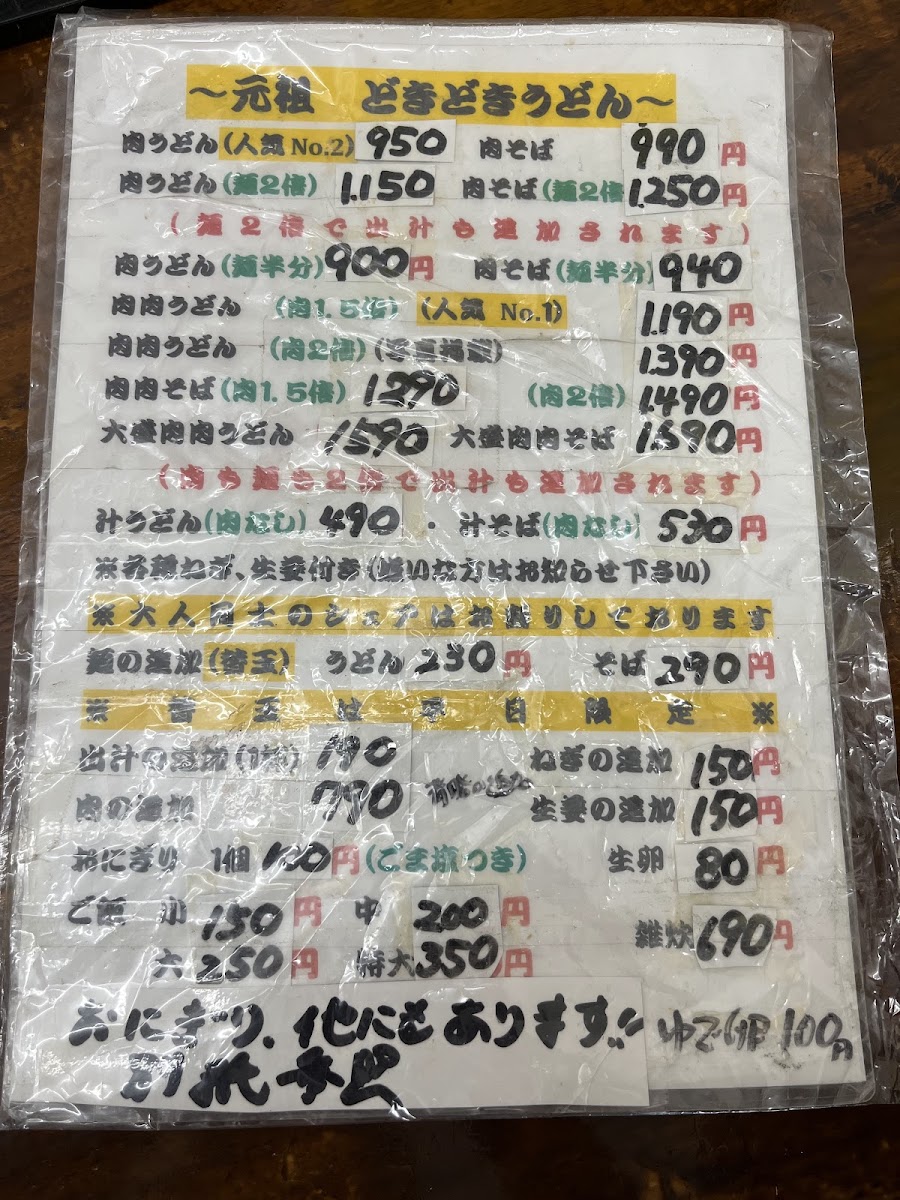 ～元祖 どきどきうどん～
肉うどん(人気No.2) 950 肉そば 990円
肉うどん(麺2倍) 1.150 肉そば(麺2倍 1.250円
(麺2倍で出汁も追加されます)
肉うどん(麺半分)900円 肉そば(麺半分)940
肉肉うどん (肉1.5倍) (人気 No.1) 1.190円
肉肉うどん (肉2倍) 1.390円
肉肉そば(肉1.5倍) 1290 (肉2倍) 1.490円
大盛肉肉うどん 1590 大盛肉肉そば 1.690円
(肉も麺も2倍で出汁も追加されます)
汁うどん(肉なし) 490 ・ 汁そば(肉なし) 530円
※各種ねぎ、生姜付き(嫌いな方はお知らせ下さい)
※大人同士のシェアはお断りしております
麺の追加(替玉) うどん 230円 そば 290円
※替玉は平日限定※
出汁の追加 190 ねぎの追加 150円
肉の追加 790 生姜の追加 150円
おにぎり 1個 100円(ごま塩つき) 生卵 80円
ご飯 小 150円 中 200円 雑炊 690円
大 250円 特大 350円
おにぎり、他にもあります!!
別紙参照
ゆで卵 100円